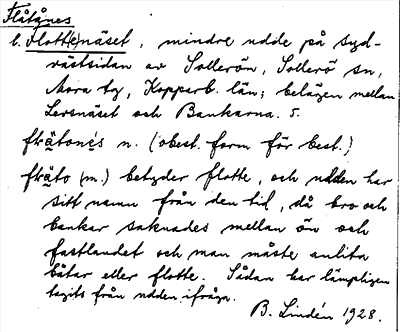 Flåtånes
l. Flott(e)näset, mindre udde på syd-
västsidan av Sollerön, Sollerö sn,
Mora tg, Kopparb. län; belägen mellan
Lersnäset och Bankarna. S.
flạ̈tone's n. (obest. form för best.)
flạ̈to (m.) betyder flotte, och udden har
sitt namn från den tid, då bro och
bankar saknades mellan ön och
fastlandet och man måste anlita
båtar eller flotte. Sådan har lämpligen
tagits från udden ifråga.
B. Lindén 1928.